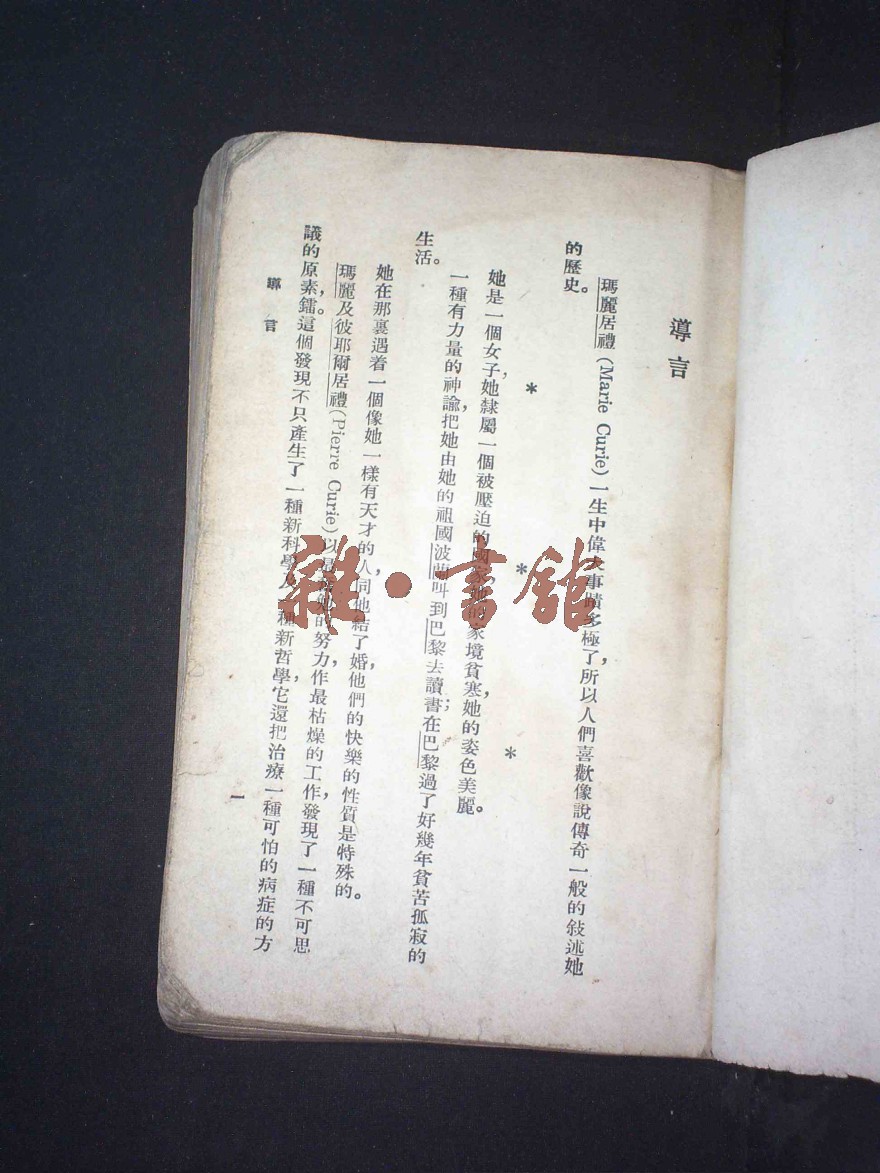 導言
瑪麗居禮(Marie Curie)一生中偉大事蹟多極了，所以人們喜歡像說傳奇一般的敍述她
的歷史。
* * *
她是一個女子，她隸屬一個被壓迫的國家，她的家境貧寒，她的姿色美麗。
一種有力量的神諭，把她由她的祖國波蘭叫到巴黎去讀書；在巴黎過了好幾年貧苦孤寂的
生活。
她在那裏遇着一個像她一樣有天才的人，同他結了婚，他們的快樂的性質是特殊的。
瑪麗及彼耶爾居禮(Pierre Curie)以最 的努力，作最枯燥的工作，發現了一種不可思
議的原素，鐳。這個發現不只產生了一種新科學及一種新哲學，它還把治療一種可怕的病症的方
導言
一
雜·書館